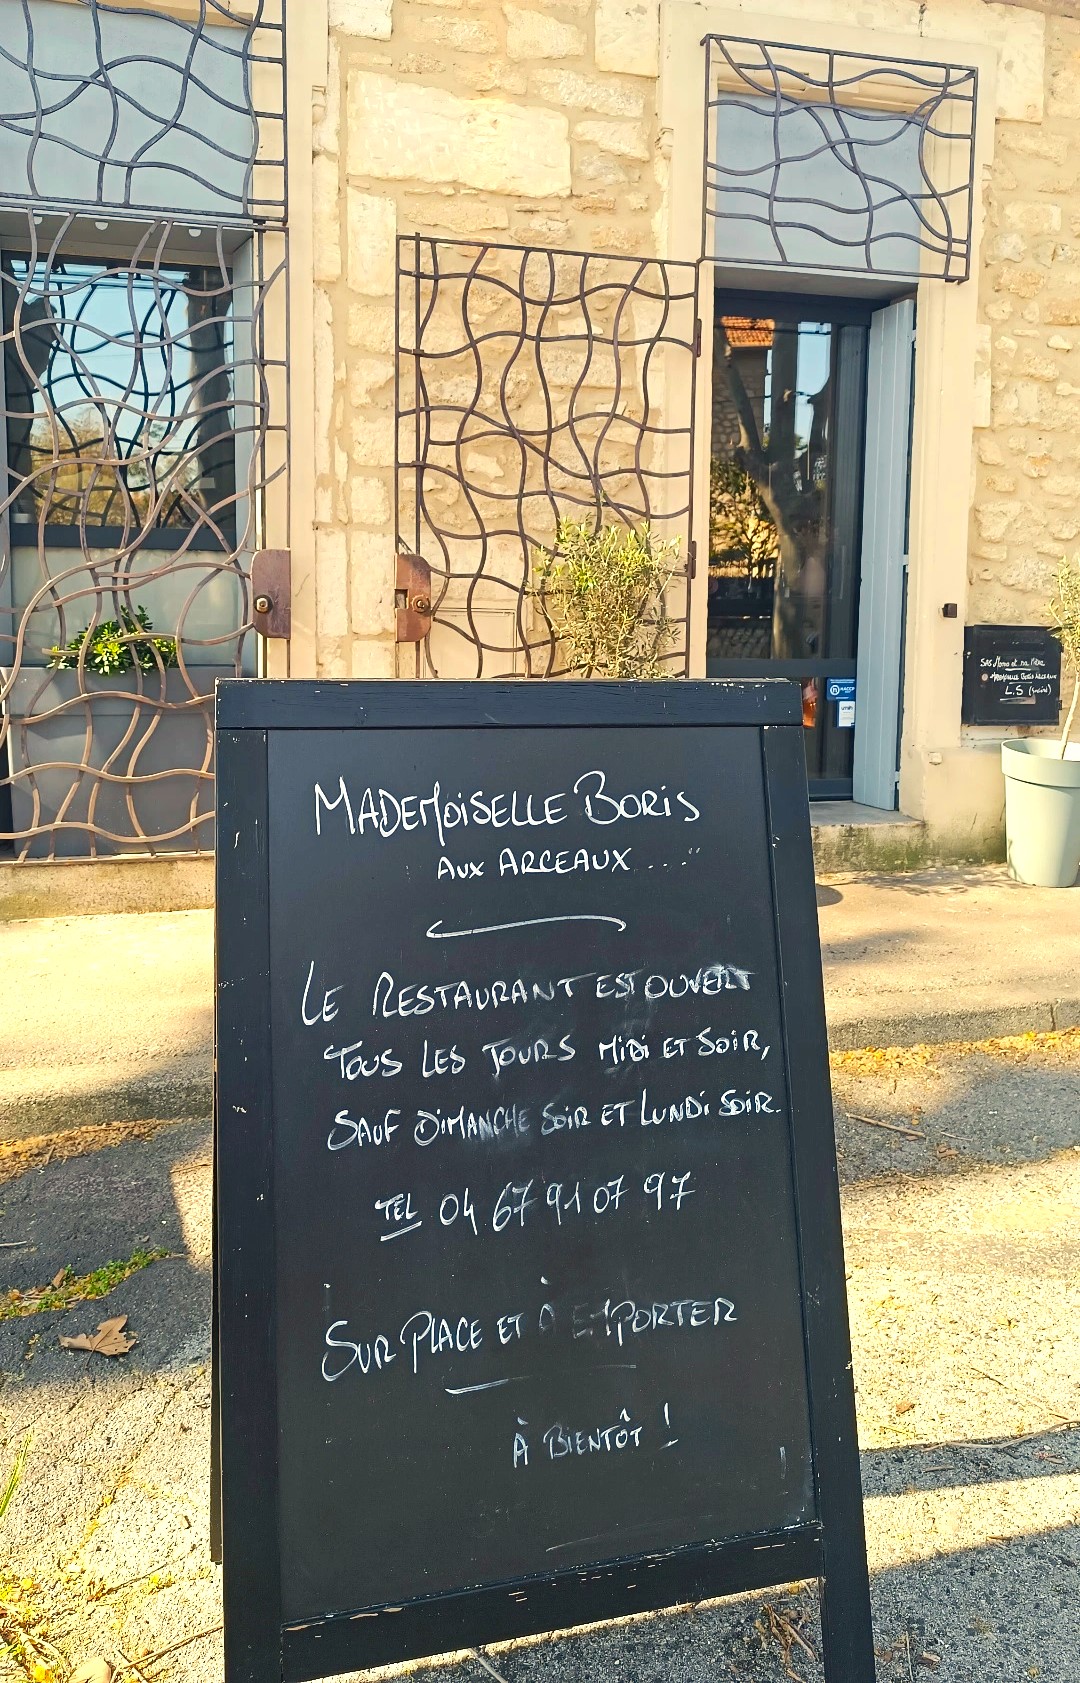 MADEMOISELLE BORIS
AUX ARCEAUX ...."
LE RESTAURANT EST OUVERT
TOUS LES JOURS MIDI ET SOIR,
SAUF DIMANCHE SOIR ET LUNDI SOIR.
TEL 04 67 91 07 97
SUR PLACE ET À EMPORTER
À BIENTÔT !
SAS Momo et sa Mère
MADEMOISELLE BORIS ARCEAUX
L.S (Société)
HACCP